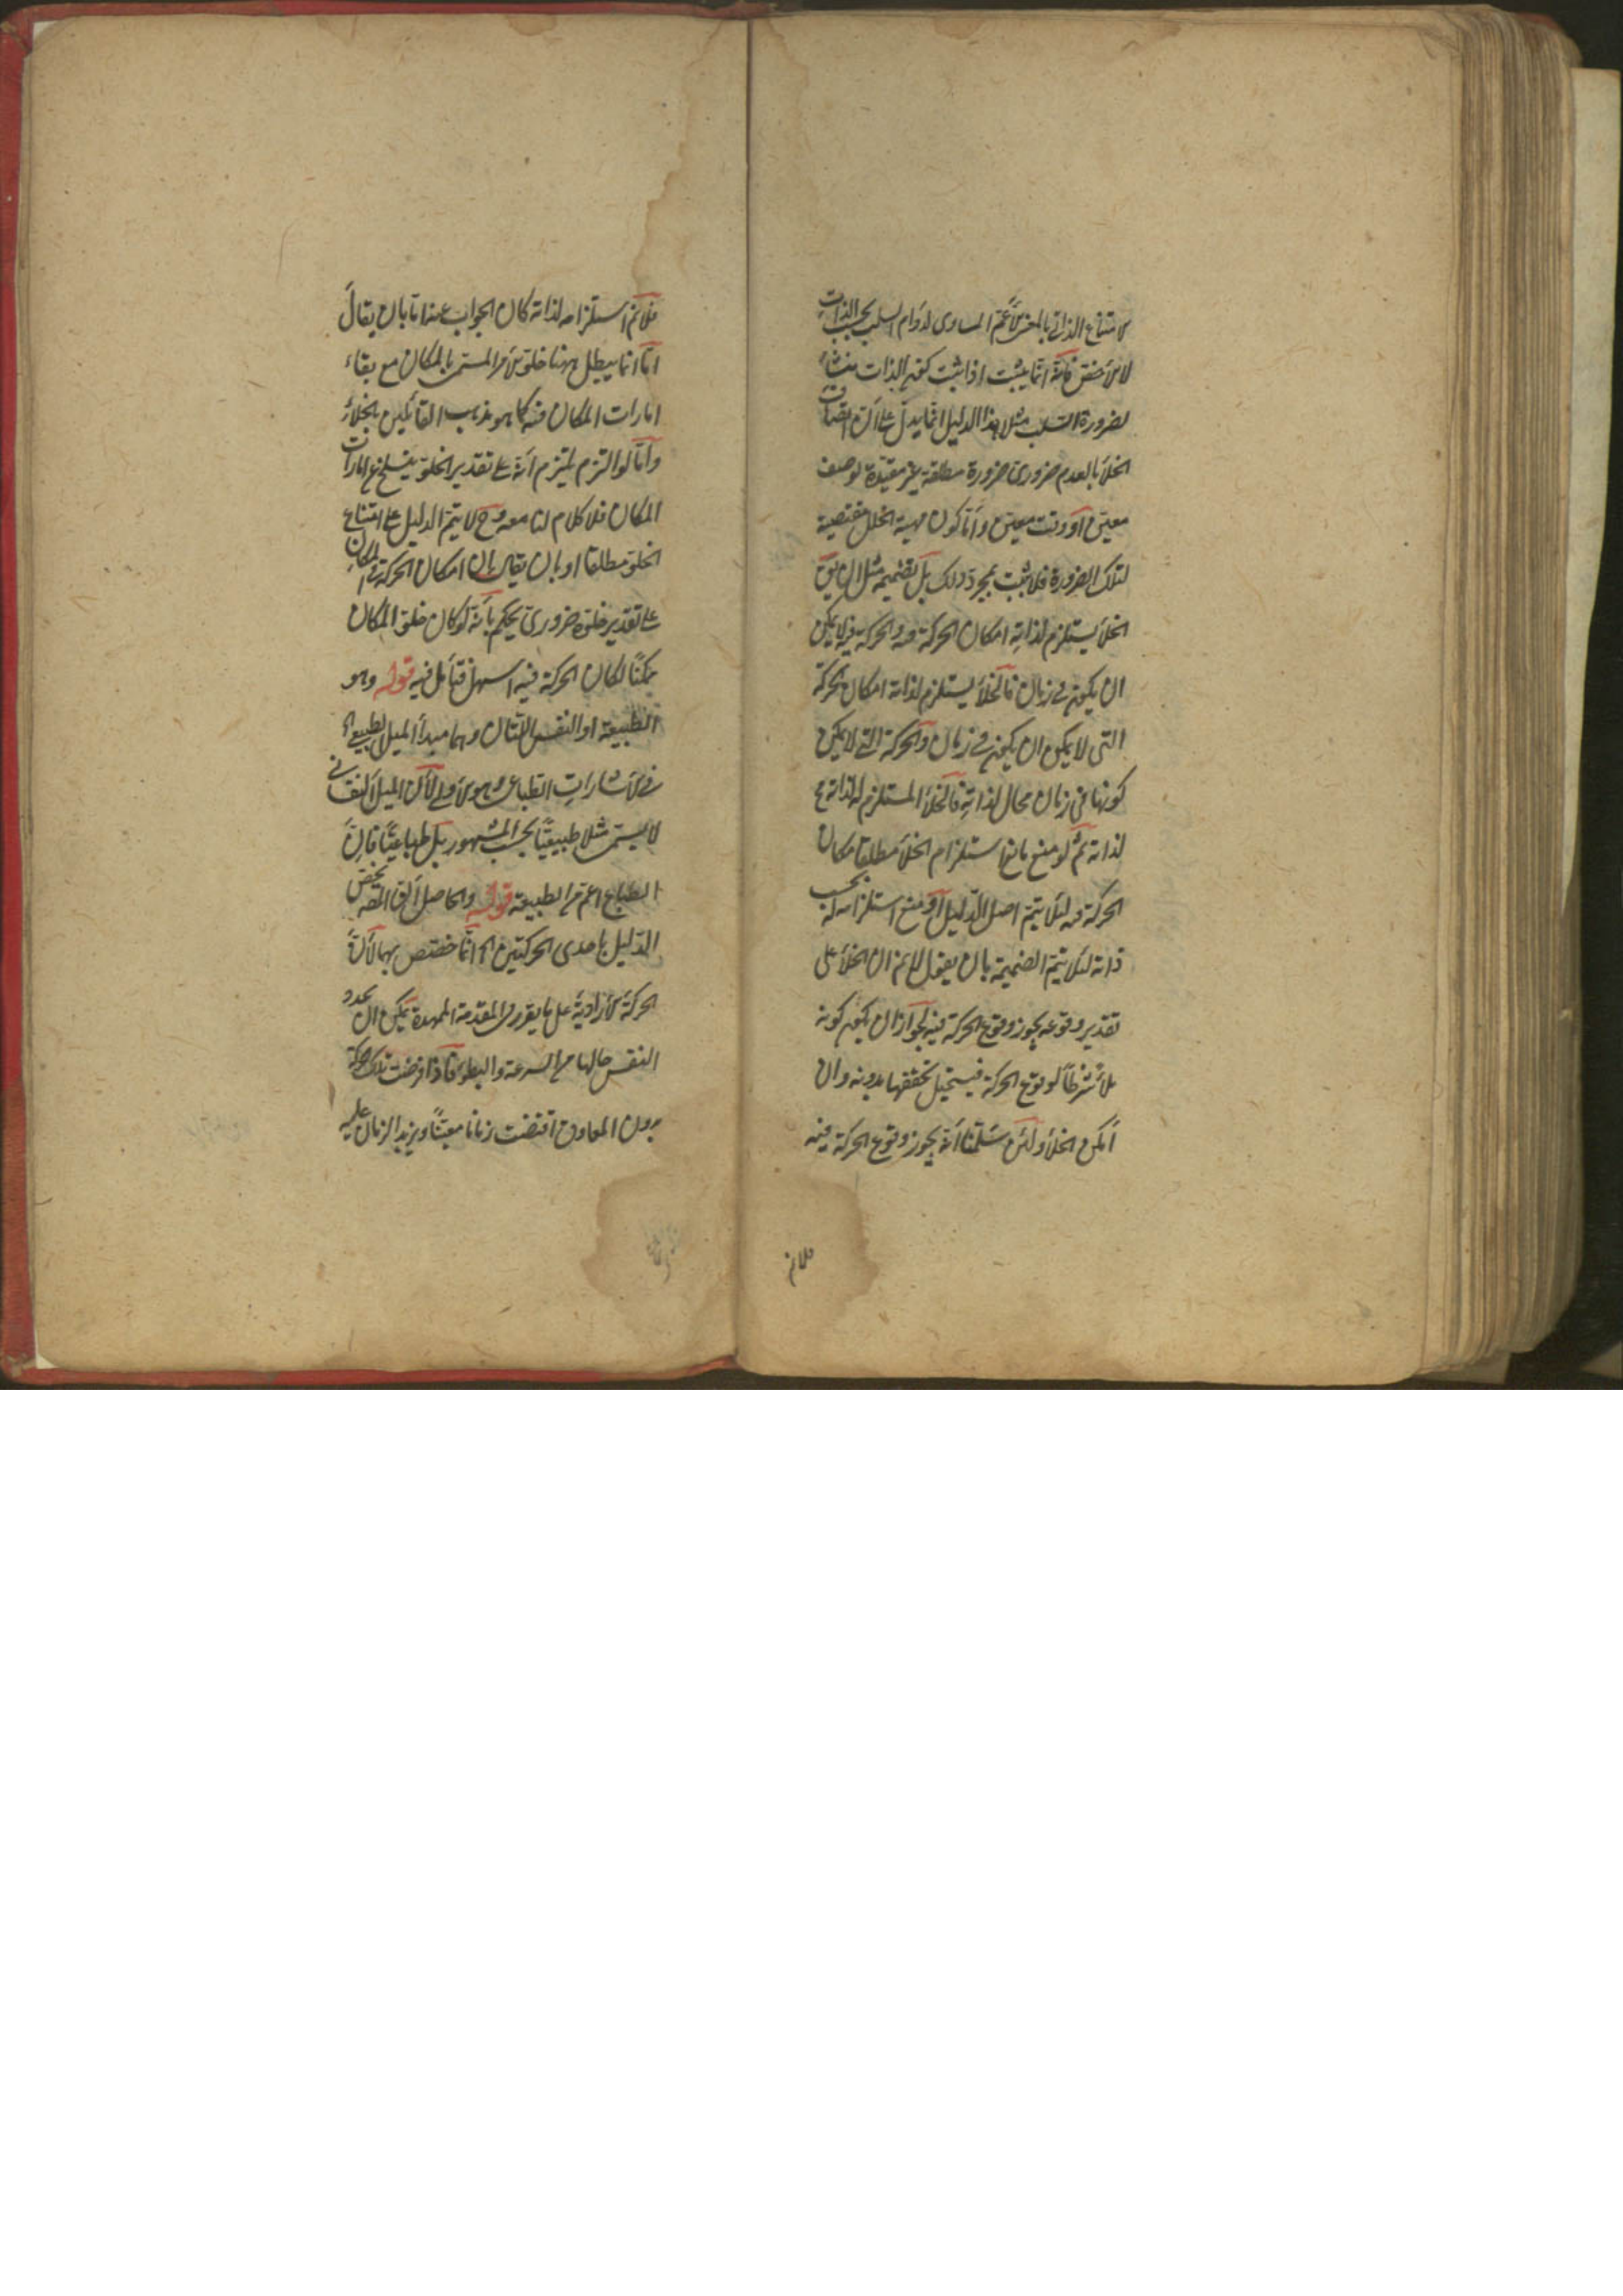 الامتناع الذاتي بالمعنى الاعم المساوى لدوام السلب بحسب الذات
لا الاخص فانه انما يثبت اذا ثبت كون الذات منشاء
لضرورة السلب مثلا هذا الدليل انما يدل على ان اتصاف
الخلأ بالعدم ضرورى ضرورة مطلقة غير مقيدة بوصف
معين او وقت معين واما كون مهية الخلأ مقتضية
لتلك الضرورة فلا يثبت بمجرد ذلك بل بضميمة مثل ان يق
الخلأ يستلزم لذاته امكان الحركة فيه والحركة فيه لا يمكن
ان يكون في زمان فالخلأ يستلزم لذاته امكان الحركة
التى لا يمكن ان يكون في زمان والحركة التي لا يمكن
كونها في زمان محال لذاته فالخلأ المستلزم له لذاته مح
لذاته ثم لو منع مانع استلزام الخلأ مطلقا امكان
الحركة فيه لئلا يتم اصل الدليل او منع استلزامه له بحسب
ذاته لئلا يتم الضميمة بان يقول لانم ان الخلأ على
تقدير وقوعه يجوز وقوع الحركة فيه لجواز ان يكون كونه
ملأ شرطا لوقوع الحركة فيستحيل تحققها بدونه وان
امكن الخلأ ولئن سلمنا انه يجوز وقوع الحركة فيه
فلانم
فلانم استلزامه لذاته كان الجواب عنه اما بان يقال
انا انما يبطل ههنا خلو الامر المسمى بالمكان مع بقاء
امارات المكان فيه كما هو مذهب القائلين بالخلأ
واما لو التزم ملتزم انه على تقدير الخلو ينسلخ عن امارات
المكان فلا كلام لنا معه وح لا يتم الدليل على امتناع
الخلو مطلقا او بان يقال بان امكان الحركة في المكان
على تقدير خلوه ضرورى يحكم بانه لو كان خلو المكان
ممكنا لكان الحركة فيه اسهل فتأمل فيه قوله وهو
الطبيعة او النفس اللتان وهما مبدأ الميل الطبيعي
في الاشارات الطباعى وهو الاولى لان الميل النفسانى
لا يسمى مثلا طبيعيا بحسب المشهور بل طباعيا فان
الطباع اعم من الطبيعة قوله والحاصل ان القصد تخص
الدليل باحدى الحركتين انما اختص بهما لان
الحركة الارادية على ما يقرر في المقدمة الممهدة يمكن ان تحدد
النفس حالها من السرعة والبطؤ فاذا فرضت تلك الحركة
بدون المعاوق اقتضت زمانا معينا ويزيد الزمان عليه